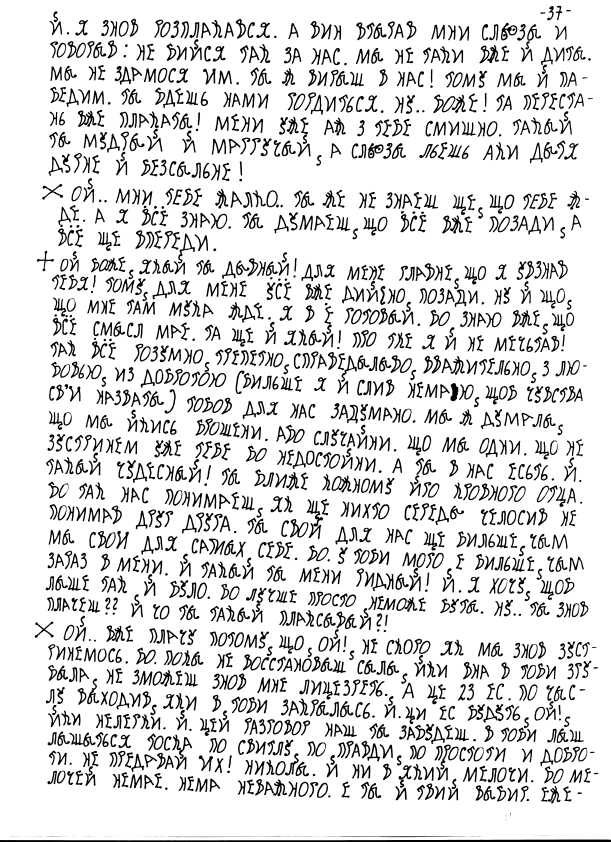 -37-
Й. Я ЗНОВ РОЗПЛАКАВСЯ. А ВИН ВТЫРАВ МНИ СЛЬОЗЫ И
ГОВОРЫВ: НЕ БИЙСЯ ТАК ЗА НАС. МЫ НЕ ТАКИ ВЖЕ Й ДИТЫ.
МЫ НЕ ЗДАМОСЯ ИМ. ТЫ Ж ВИРЫШ В НАС! ТОМУ МЫ Й ПА-
БЕДИМ. ТЫ БДЕШЬ НАМИ ГОРДИТЬСЯ. НУ.. БОЖЕ! ТА ПЕРЕСТА-
НЬ ВЖЕ ПЛАКАТЫ! МЕНИ УЖЕ АЖ З ТЕБЕ СМИШНО. ТАКЫЙ
ТЫ МУДРЫЙ Й МАГГУЧЫЙ, А СЛЬОЗЫ ЛЬЕШЬ АКИ ДЫТЯ
ДУРНЕ Й БЕЗСЫЛЬНЕ!
ОЙ.. МНИ ТЕБЕ ЖАЛКО. ТЫ ЖЕ НЕ ЗНАЕШ ЩЕ, ЩО ТЕБЕ Ж-
ДЕ. А Я ВСЁ ЗНАЮ. ТЫ ДУМАЕШ, ЩО ВСЁ ВЖЕ ПОЗАДИ, А
ВСЁ ЩЕ ВПЕРЕДИ.
ОЙ БОЖЕ, ЯКЫЙ ТЫ ДЫВНЫЙ! ДЛЯ МЕНЕ ГЛАВНЕ, ЩО Я УВЗНАВ
ТЕБЯ! ТОМУ, ДЛЯ МЕНЕ УСЁ ВЖЕ ДИЙСНО, ПОЗАДИ. НУ Й ЩО,
ЩО МНЕ ТАМ МУКА ЖДЕ. Я В Е ГОТОВЫЙ. БО ЗНАЮ ВЖЕ, ЩО
ВСЁ СМЫСЛ МАЕ. ТА ЩЕ Й ЯКЫЙ! ПРО ТКЕ Я Й НЕ МЕЧЬТАВ!
ТАК ВСЁ РОЗУМНО, ТРЕПЕТНО, СПРАВЕДЫЛЫВО, ВВАЖИТЕЛЬНО, З ЛЮ-
БОВЬЮ, ИЗ ДОБРОТОЮ (БИЛЬШЕ Я Й СЛИВ НЕМАЮ, ЩОБ ЧУВСТВА
СВ'И НАЗВАТЫ) ТОБОВ ДЛЯ НАС ЗАДУМАНО. МЫ Ж ДУМАЛЫ,
ЩО МЫ ЙКИСЬ БРОШЕНИ. АБО СЛУЧАЙНИ. ЩО МЫ ОДНИ. ЩО НЕ
ЗУСТРИНЕМ УЖЕ ТЕБЕ БО НЕДОСТОЙНИ. А ТЫ В НАС ЕСЬТЬ. Й.
ТАКЫЙ ЧУДЕСНЫЙ! ТЫ БЛИЖЕ КОЖНОМУ ЙГО КРОВНОГО ОТЦА.
БО ТАК НАС ПОНИМАЕШ, ЯК ЩЕ НИХТО СЕРЕДЫ ЧЕЛОСИВ НЕ
ПОНИМАВ ДРУГ ДРУГА. ТЫ СВОЙ ДЛЯ НАС ЩЕ БИЛЬШЕ, ЧЫМ
МЫ СВОИ ДЛЯ САМЫХ СЕБЕ. БО. У ТОБИ МОГО Е БИЛЬШЕ, ЧЫМ
ЗАРАЗ В МЕНИ. Й ТАКЫЙ ТЫ МЕНИ РИДНЫЙ! Й. Я ХОЧУ, ЩОБ
ЛЫШЕ ТАК Й БУЛО. БО ЛУЧШЕ ПРОСТО НЕМОЖЕ БУТЫ. НУ.. ТЫ ЗНОВ
ПЛАЧЕШ?? Й ЧО ТЫ ТАКЫЙ ПЛАКСЫВЫЙ?!
ОЙ.. ВЖЕ ПЛАЧУ ПОТОМУ, ЩО, ОЙ!, НЕ СКОРО ЯК МЫ ЗНОВ ЗУСТ-
РИНЕМОСЬ. БО. ПОКЫ НЕ ВОССТАНОВЫШ СЫЛЫ, ЙКИ ВНА В ТОБИ ЗРУ-
БЫЛА, НЕ ЗМОЖЕШ ЗНОВ МНЕ ЛИЦЕЗРЕТЬ, А ЦЕ 23 ЕС. ПО ЧЫС-
ЛУ ВЫХОДИВ, ЯКИ В ТОБИ ЗАКРЫЛАСЬ. Й. ЦИ ЕС БУДУТЬ, ОЙ!,
ЙКИ НЕЛЕГКИ. Й. ЦЕЙ РАЗГОВОР НАШ ТЫ ЗАБУДЕШ. В ТОБИ ЛЫШ
ЛЫШЫТЬСЯ ТОСКА ПО СВИТЛУ, ПО ПРАВДИ, ПО ПРОСТОТИ И ДОБРО-
ТИ. НЕ ПРЕДАВАЙ ИХ! НИКОЛЫ. Й НИ В ЯКИЙ МЕЛОЧИ. БО МЕ-
ЛОЧЕЙ НЕМАЕ. НЕМА НЕВАЖНОГО. Е ТЫ Й ТВИЙ ВЫБИР. ЕЖЕ-